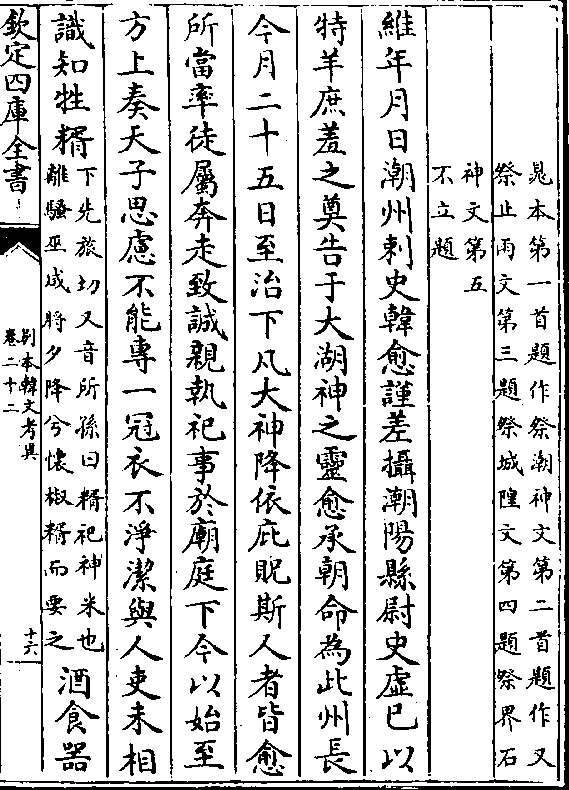 晁本第一首題作祭潮神文第二首題作又
祭止雨文第三題祭城隍文第四題祭界石
神文第五
不立題
維年月日潮州刺史韓愈謹差攝潮陽縣尉史虚已以
特羊庶羞之奠告于大湖神之靈愈承朝命為此州長
今月二十五日至治下凡大神降依庇貺斯人者皆愈
所當率徒屬奔走致誠親執祀事於廟庭下今以始至
方上奏天子思慮不能專一冠衣不淨潔與人吏未相
識知牲糈
下先旅切又音所孫曰糈祀神米也
離騷巫咸將夕降兮懷椒糈而要之
酒食器
欽定四庫全書
别本韓文考異
卷二十二
十六